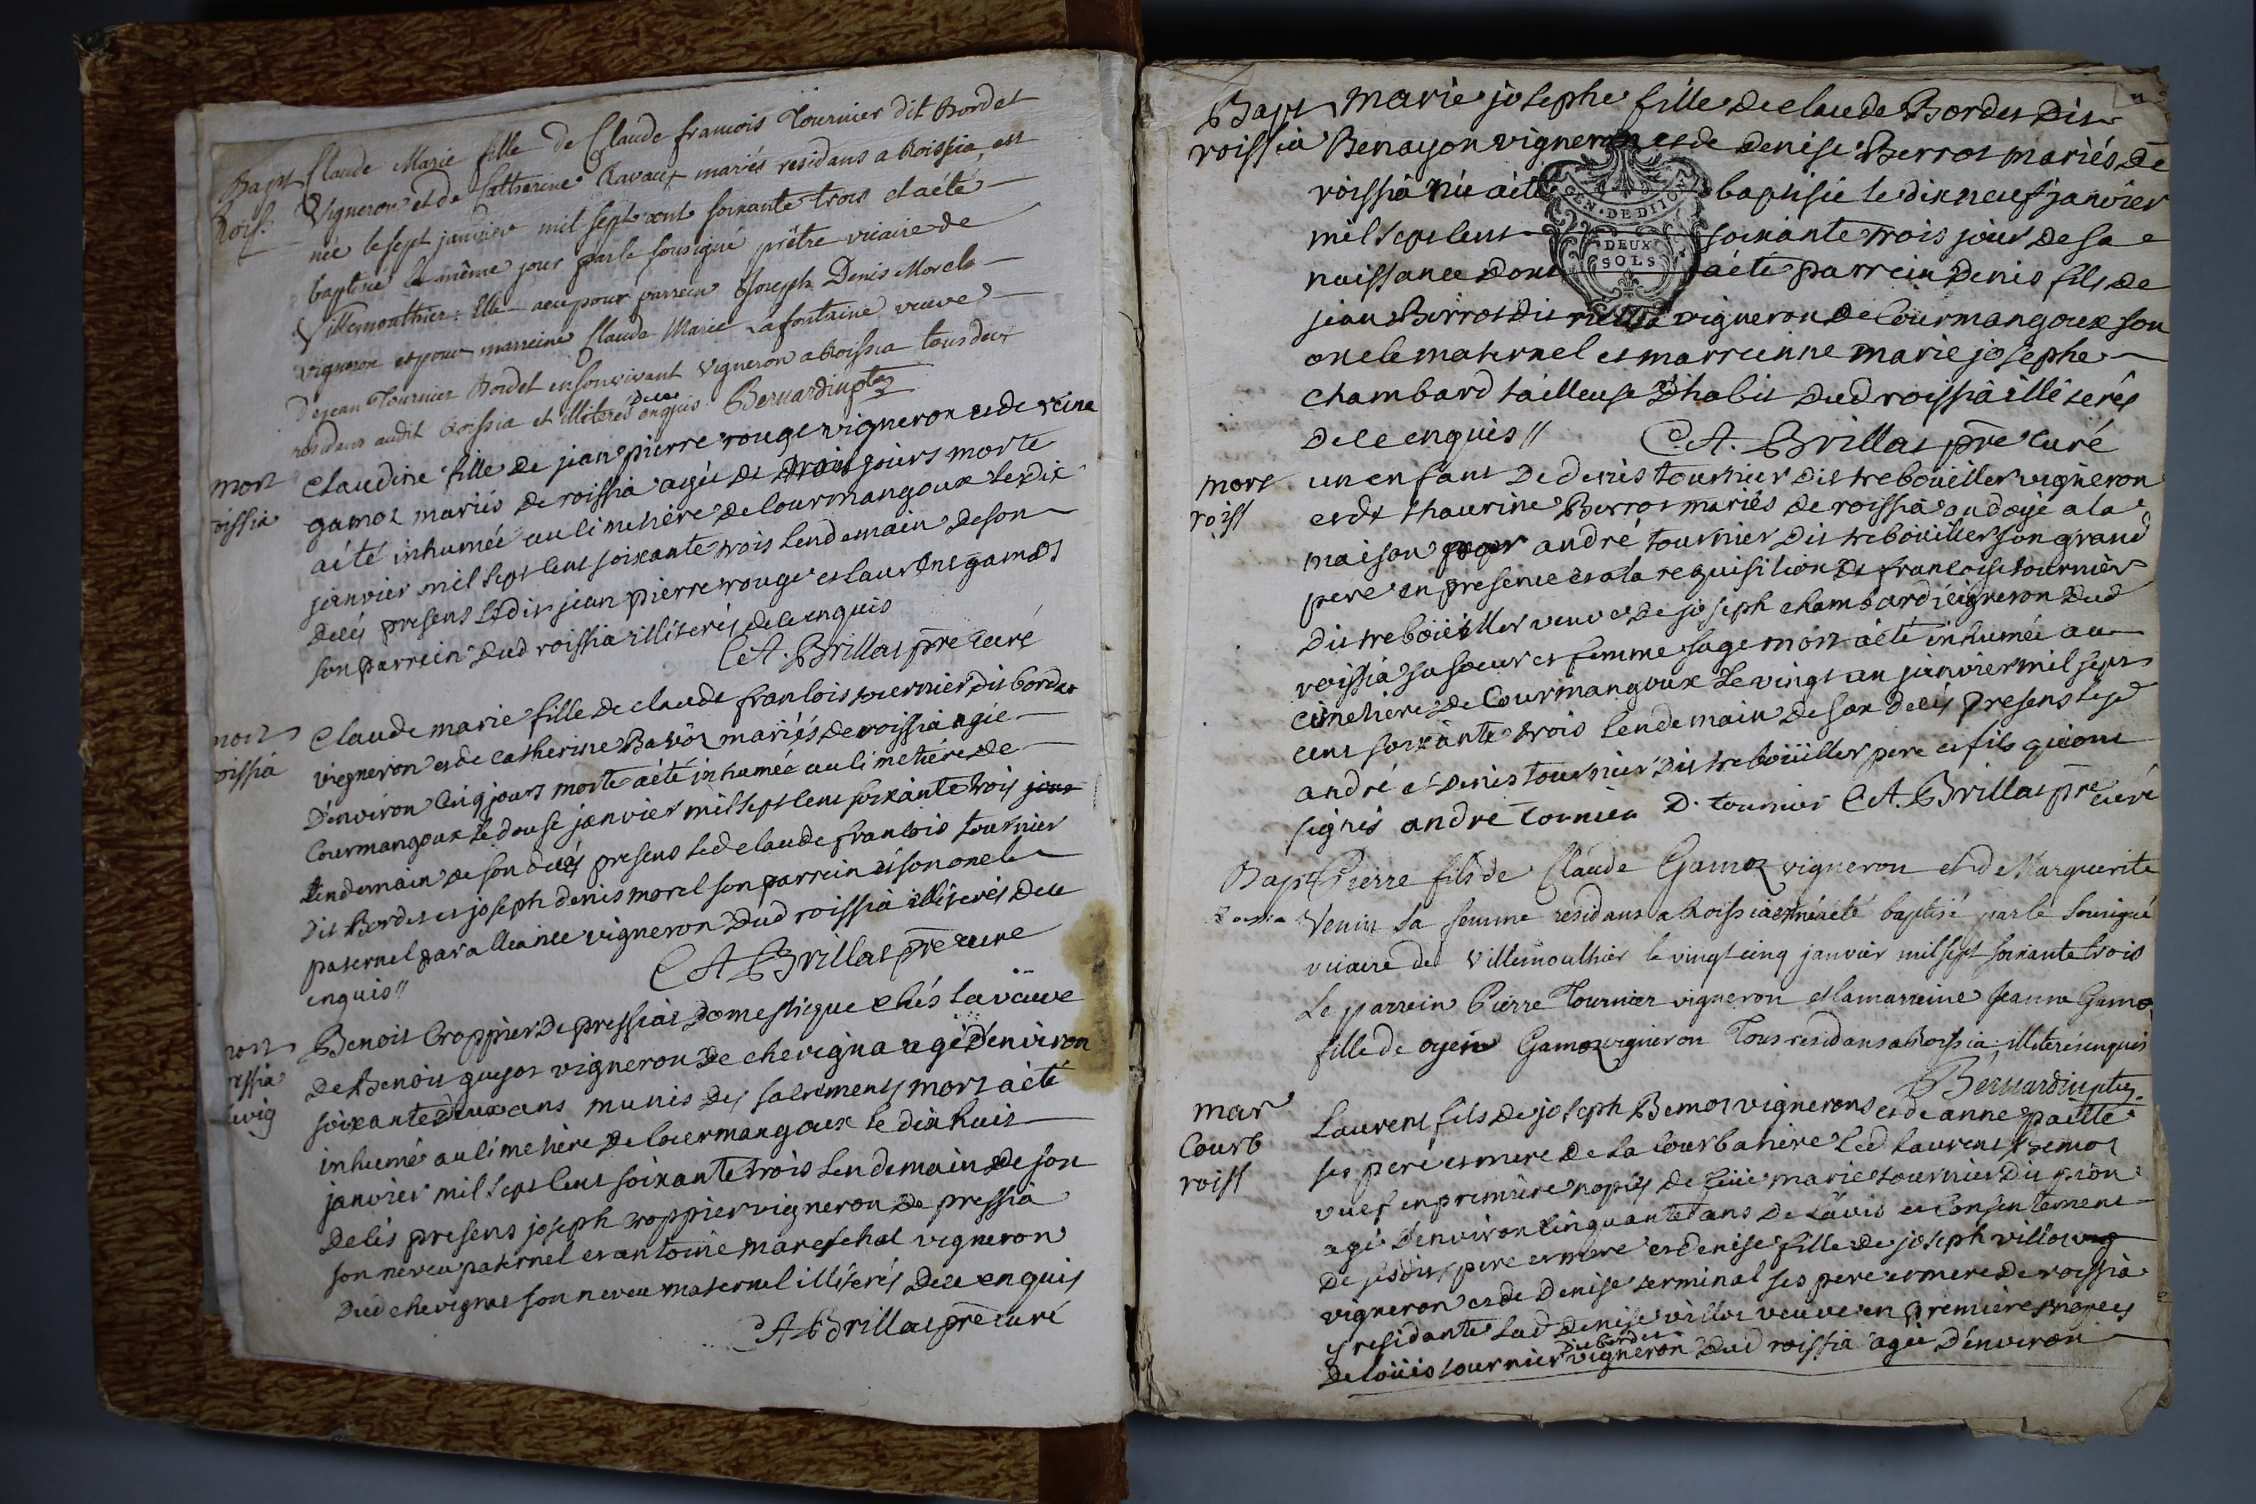 Bapt Claude Marie fille de Claude francois Tournier dit Bordet
Roiss. Vigneron et de Catherine Ravaux mariés residans a Roissia, est
née le sept janvier mil sept cent soixante trois et a été
baptisé le même jour par le sousigné prêtre vicaire de
Villemouthier. Elle a eu pour parrein Joseph Denis Morel
vigneron et pour marreine Claude Marie Lafontaine veuve
De jean Tournier Bordet en son vivant vigneron a Roissia tous deux
residans audit Roissia et illiterés de ce enquis Bernardin ptre
mort claudine fille de jean pierre rouge vigneron et de reine
oissia gamoz mariés de roissia agée de trois jours morte
a été inhumée au cimetière de Courmangoux le dix
janvier mil sept cent soixante trois lendemain de son
decés presens ledit jean pierre rouge et laurent gamoz
son parrein dud roissia illiterés de ce enquis
C A. Brillat pre curé
mort Claude marie fille de claude francois tournier dit bordet
oissia vigneron et de catherine Bavoz mariés de roissia agée
D'environ cinq jours morte a été inhumée au cimetière de
Courmangoux le douse janvier mil sept cent soixante trois jour
lendemain de son decés presens led claude francois tournier
dit Bordet et joseph denis morel son parrein et son oncle
paternel par alliance vigneron dud roissia illiterés de ce
enquis //
C A Brillat pre curé
mort Benoit Croppier de pressiat domestique chés la veuve
essia De Benoit guyot vigneron de chevigna agé d'environ
evig soixante deux ans munis des sacrements mort a été
inhumé au cimetière de Courmangoux le dix huit
janvier mil sept cent soixante trois lendemain de son
decés presens joseph croppier vigneron de pressia
son neveu paternel et antoine mareschal vigneron
dud chevignat son neveu maternel illiterés de ce enquis
C A Brillat pre curé
Bapt Marie josephe fille de claude Bordet dit
roissia Benayon vigneron et de denise Berrot mariés de
roissia née a été baptisée le dix neuf janvier
GEN. DE DIJON
mil sept cent soixante trois jour de sa
DEUX
SOLS
naissance dont a été parrein denis fils de
jean Berrot dit vigneron de Courmangoux son
oncle maternel et marreinne marie josephe
chambard tailleuse d'habit dud roissia illiterés
de ce enquis // C A. Brillat pre curé
mort un enfant de denis tournier dit trebouiller vigneron
roiss et de thaurine Berrot mariés de roissia ondoyé a la
maison par andré tournier dit trebouiller son grand
pere en presence et a la requisition de francoise tournier
dit trebouiller veuve de joseph chambard vigneron dud
roissia sa soeur et femme sage mort a été inhumée au
cimetiere de Courmangoux le vingt un janvier mil sept
cent soixante trois lendemain de son decés presens led
andré et denis tournier dit trebouiller pere et fils qui ont
signés andré Tornier D. tournier C A. Brillat pre curé
Bapt Pierre fils de Claude Gamoz vigneron et de Marguerite
Roissia Venin sa femme residans a Roissia est né a été baptisé par le sousigné
vicaire de Villemouthier le vingt cinq janvier mil sept soixante trois
Le parrein Pierre Tournier vigneron et la marreine Jeanne Gamoz
fille de oyen Gamoz vigneron Tous residans a Roissia, illiterés enquis
Bernardin ptre
mar Laurent fils de joseph Bemot vignerons et de anne paette
Courb ses pere et mere de la Courbatière led laurent Bemot
roiss veuf en premiere nopces de feüe marie tournier dit pion
agé d'environ cinquante ans de l'avis et consentement
de sesdits pere et mere et denise fille de joseph villot
vigneron et de denise terminal ses pere et mere de roissia
y residante lad denise villot veuve en premiere nopces
dit bordet
de loüis tournier vigneron dud roissia agée d'environ